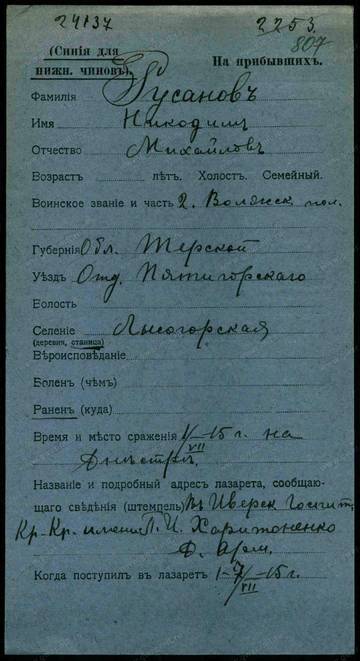 24137
2253.
807
(Синія для
нижн. чиновъ).
На прибывшихъ.
Фамилія Русановъ
Имя Никодимъ
Отчество Михайловъ
Возрастъ лѣтъ. Холост. Семейный.
Воинское званіе и часть 2. Волжск пол.
Губернія Обл. Терской
Уѣздъ Отд. Пятигорскаго
Волость
Селеніе Лысогорская
(деревня, станица)
Вѣроисповѣданіе
Боленъ (чѣмъ)
Раненъ (куда)
Время и мѣсто сраженія 1/VII–15 г. на
Днѣстрѣ,
Названіе и подробный адресъ лазарета, сообщаю-
щаго свѣдѣнія (штемпель) Иверск Госпит.
Кр. Кр. имени П. И. Харитоненко
Д. Арм.
Когда поступилъ въ лазаретъ 1–7/VII–15 г.